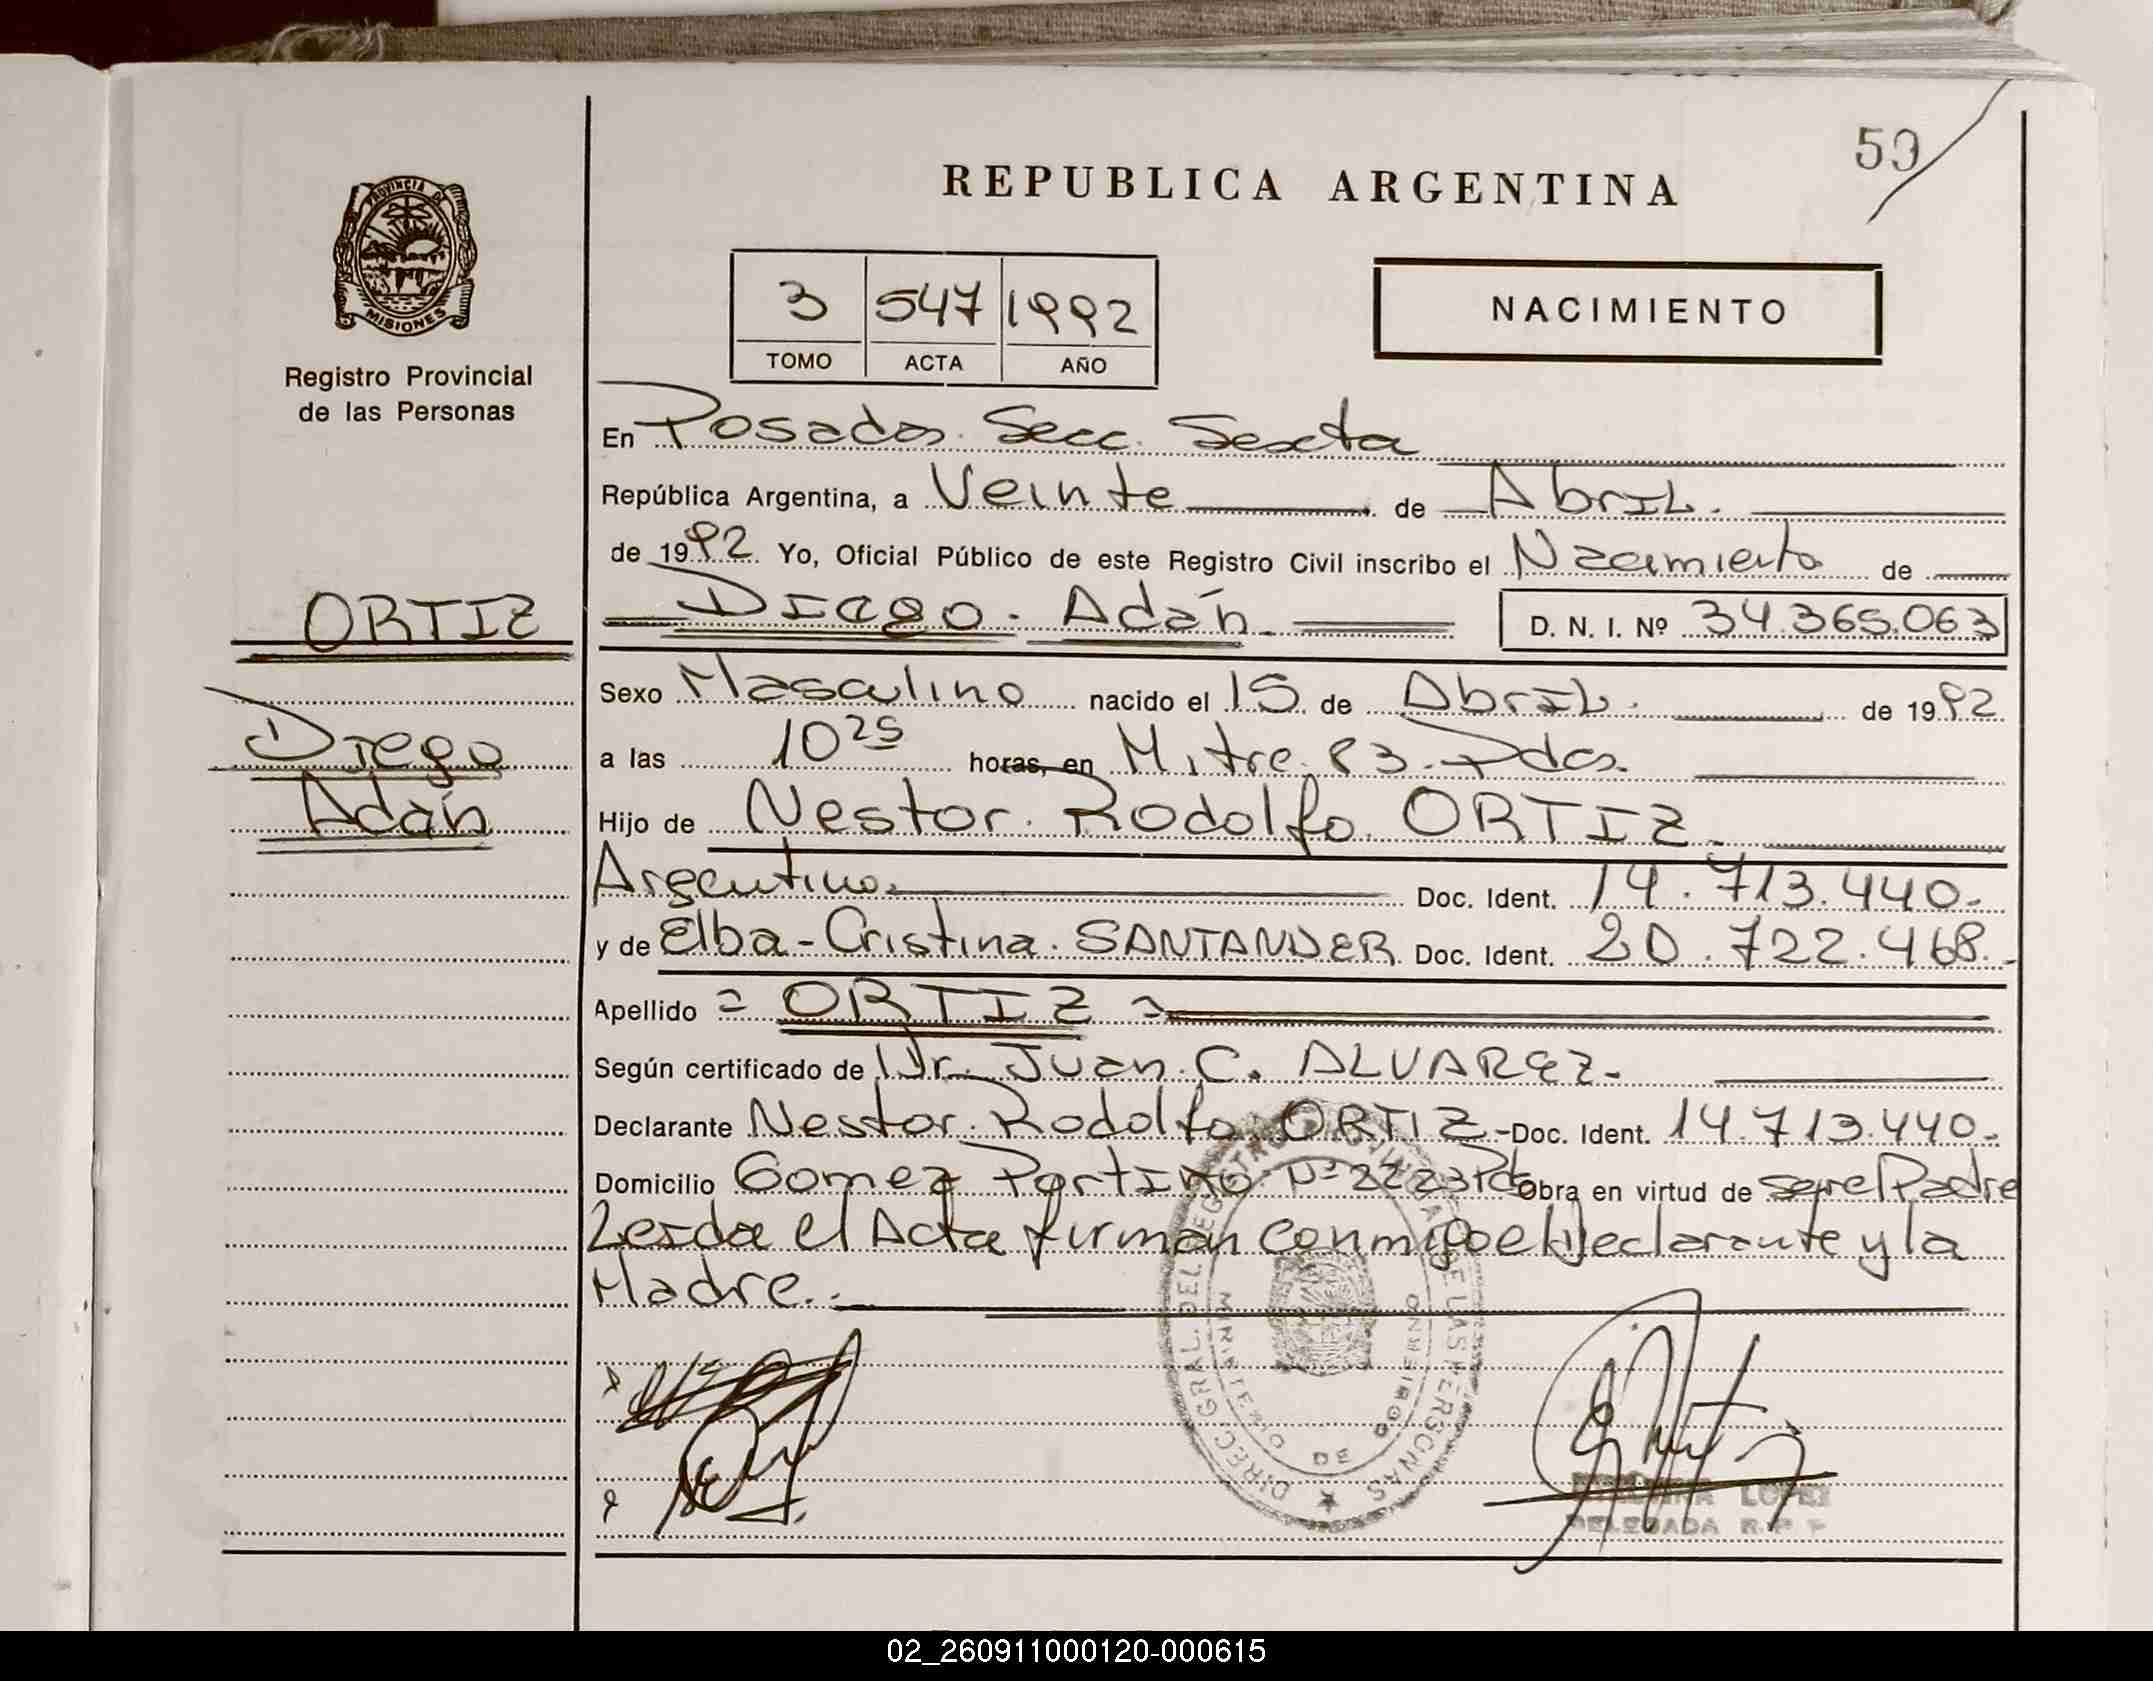 59
REPUBLICA ARGENTINA
PROVINCIA DE
MISIONES
Registro Provincial
de las Personas
3 547 1992
TOMO ACTA AÑO
NACIMIENTO
En Posadas. Secc. Sexta
República Argentina, a Veinte de Abril.
de 1992. Yo, Oficial Público de este Registro Civil inscribo el Nacimiento de
ORTIZ
Diego. Adán D. N. I. Nº 34.365.063
Sexo Masculino nacido el 15 de Abril. de 1992
Diego
a las 10 25 horas, en Mitre. 83. Pdas.
Adán
Hijo de Nestor. Rodolfo. ORTIZ.
Argentino. Doc. Ident. 14.713.440.
y de Elba-Cristina. SANTANDER Doc. Ident. 20.722.468.
Apellido = ORTIZ =
Según certificado de Dr. Juan. C. ALVAREZ.
Declarante Nestor. Rodolfo. ORTIZ - Doc. Ident. 14.713.440.
Domicilio Gomez Portinho Nº 2223 Pdas Obra en virtud de ser el Padre
Leída el Acta firman conmigo el declarante y la
Madre.
DIREC. GRAL. DEL REGISTRO DE LAS PERSONAS
MINISTERIO DE GOBIERNO
LOPEZ
DELEGADA R.P.P
02_260911000120-000615